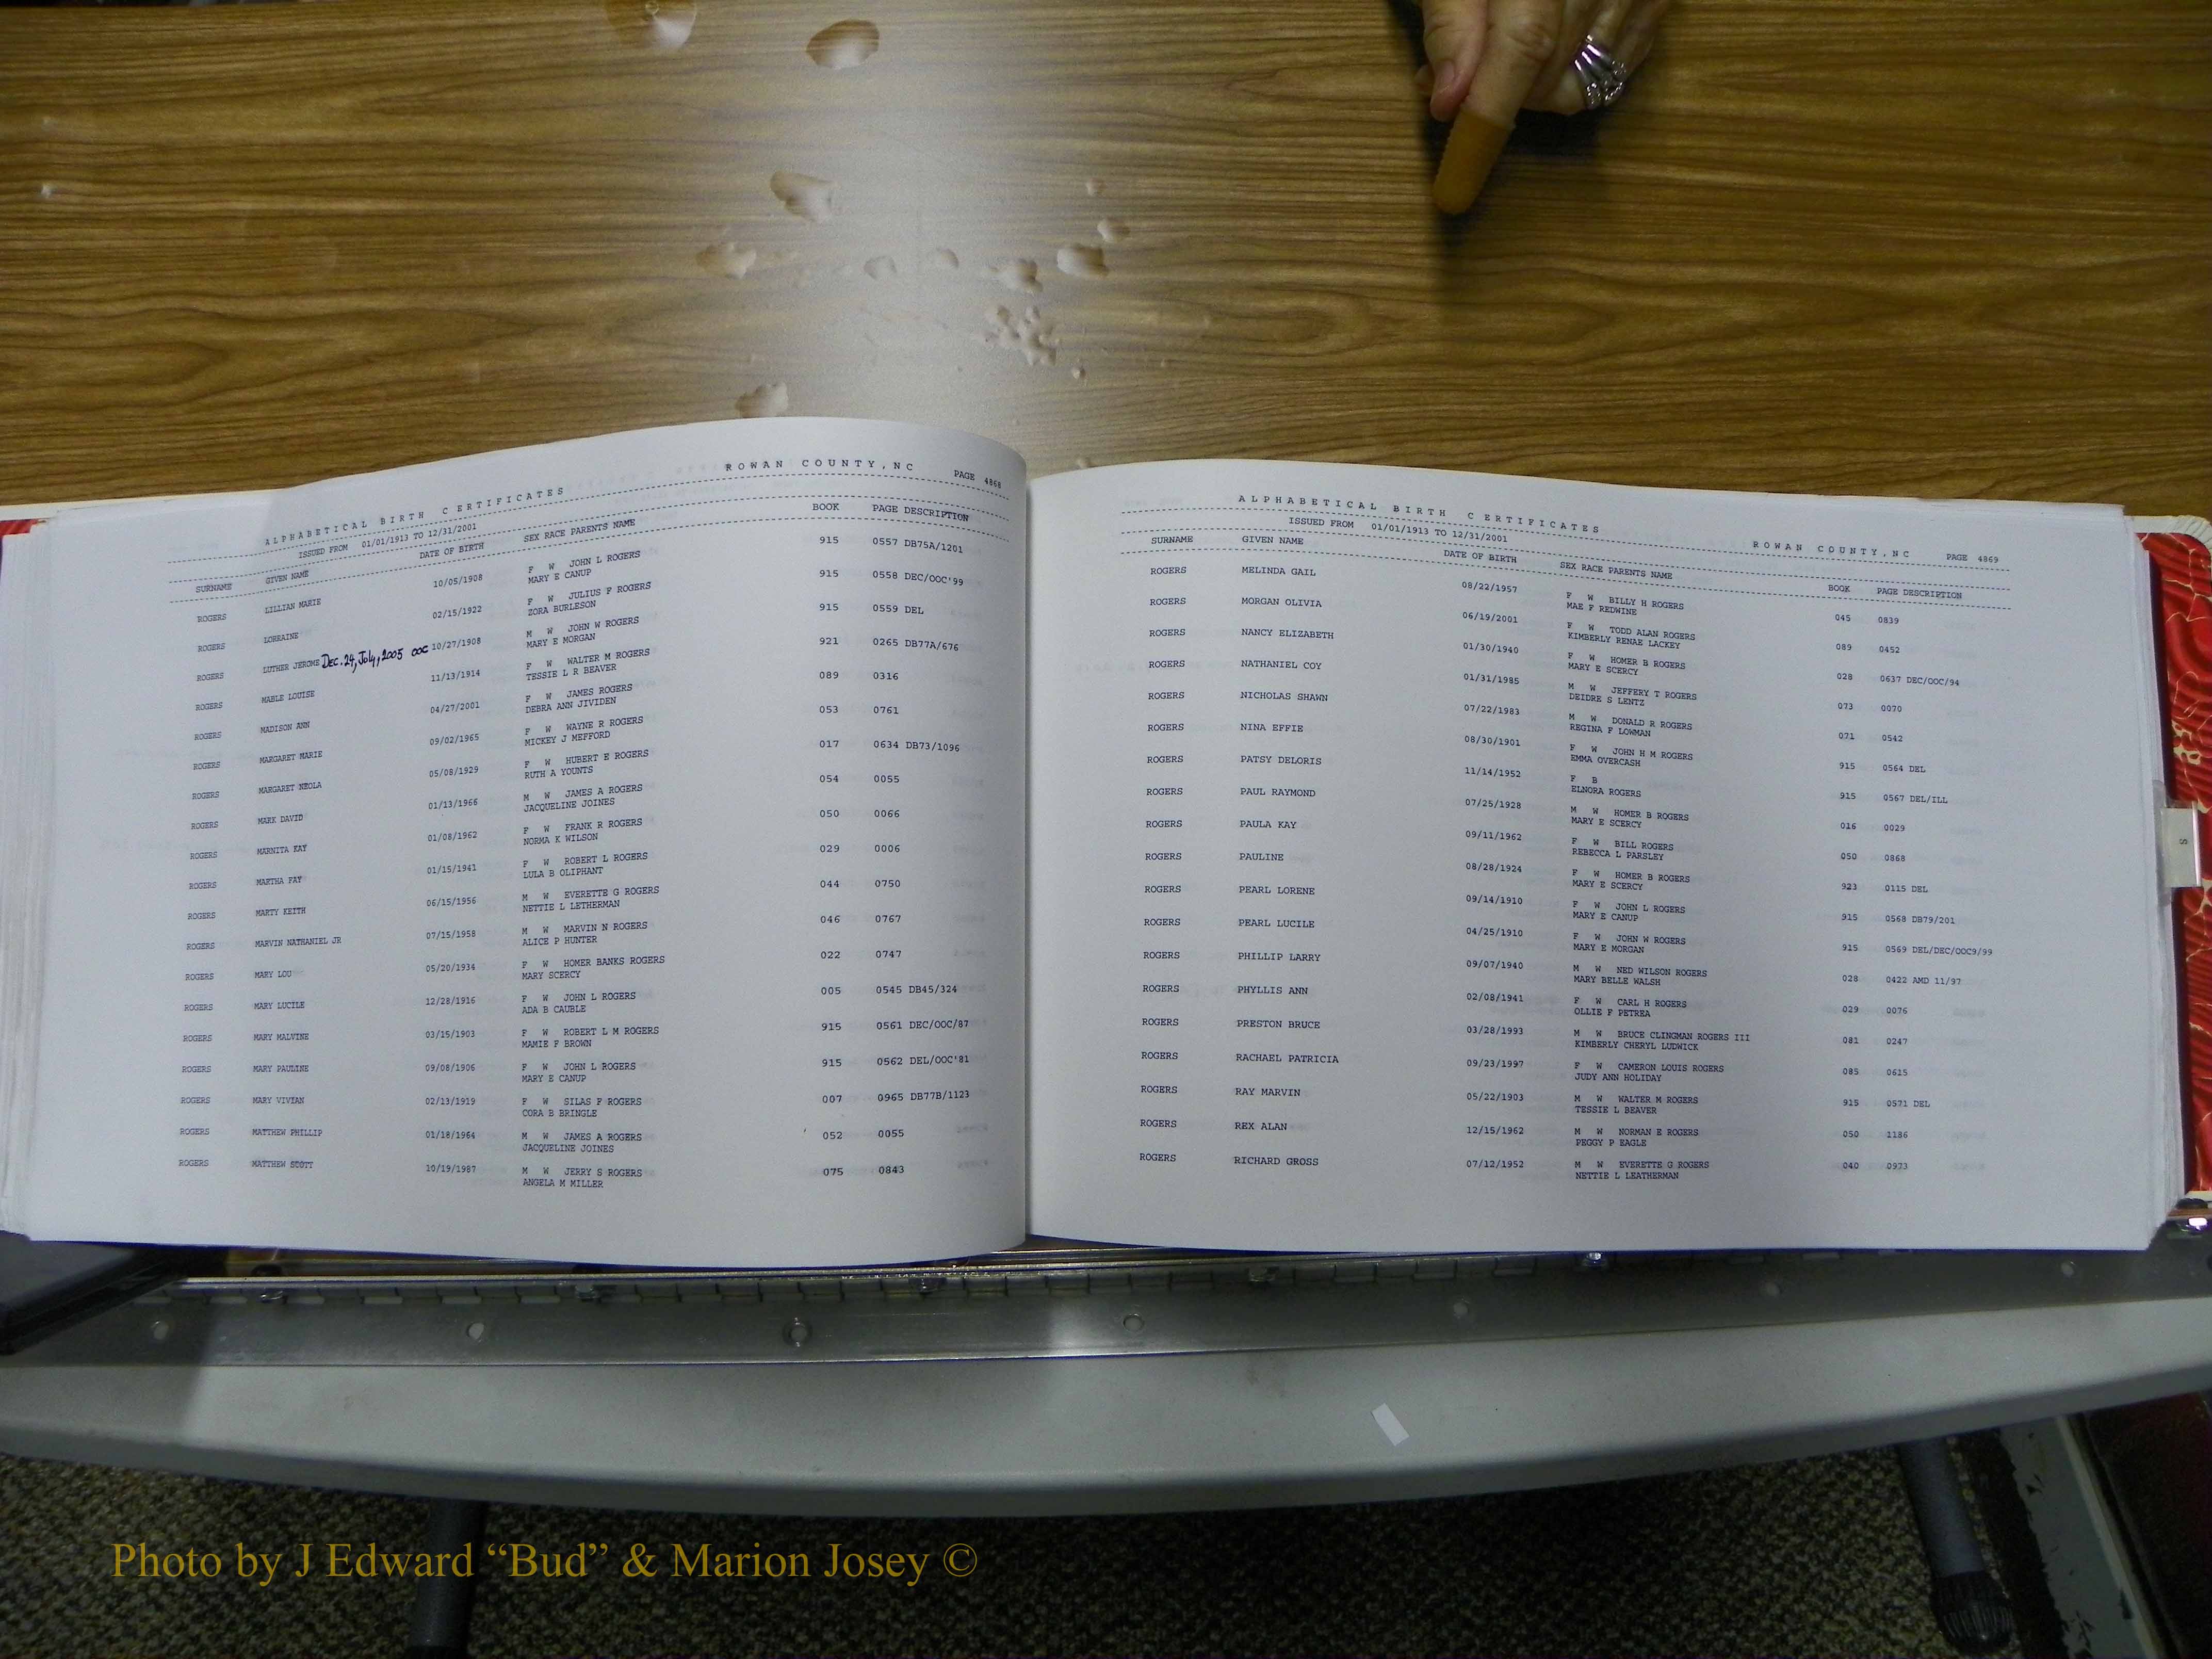 ALPHABETICAL BIRTH CERTIFICATES ROWAN COUNTY,NC PAGE 4868
ISSUED FROM 01/01/1913 TO 12/31/2001
SURNAME GIVEN NAME DATE OF BIRTH SEX RACE PARENTS NAME BOOK PAGE DESCRIPTION
ROGERS LILLIAN MARIE 10/05/1908 F W JOHN L ROGERS 915 0557 DB75A/1201
MARY E CANUP
ROGERS LORRAINE 02/15/1922 F W JULIUS F ROGERS 915 0558 DEC/OOC'99
ZORA BURLESON
ROGERS LUTHER JEROME Dec. 24, July, 2005 OOC 10/27/1908 M W JOHN W ROGERS 915 0559 DEL
MARY E MORGAN
ROGERS MABLE LOUISE 11/13/1914 F W WALTER M ROGERS 921 0265 DB77A/676
TESSIE L R BEAVER
ROGERS MADISON ANN 04/27/2001 F W JAMES ROGERS 089 0316
DEBRA ANN JIVIDEN
ROGERS MARGARET MARIE 09/02/1965 F W WAYNE R ROGERS 053 0761
MICKEY J MEFFORD
ROGERS MARGARET NEOLA 05/08/1929 F W HUBERT E ROGERS 017 0634 DB73/1096
RUTH A YOUNTS
ROGERS MARK DAVID 01/13/1966 M W JAMES A ROGERS 054 0055
JACQUELINE JOINES
ROGERS MARNITA KAY 01/08/1962 F W FRANK R ROGERS 050 0066
NORMA K WILSON
ROGERS MARTHA FAY 01/15/1941 F W ROBERT L ROGERS 029 0006
LULA B OLIPHANT
ROGERS MARTY KEITH 06/15/1956 M W EVERETTE G ROGERS 044 0750
NETTIE L LETHERMAN
ROGERS MARVIN NATHANIEL JR 07/15/1958 M W MARVIN N ROGERS 046 0767
ALICE P HUNTER
ROGERS MARY LOU 05/20/1934 F W HOMER BANKS ROGERS 022 0747
MARY SCERCY
ROGERS MARY LUCILE 12/28/1916 F W JOHN L ROGERS 005 0545 DB45/324
ADA B CAUBLE
ROGERS MARY MALVINE 03/15/1903 F W ROBERT L M ROGERS 915 0561 DEC/OOC/87
MAMIE F BROWN
ROGERS MARY PAULINE 09/08/1906 F W JOHN L ROGERS 915 0562 DEL/OOC'81
MARY E CANUP
ROGERS MARY VIVIAN 02/13/1919 F W SILAS F ROGERS 007 0965 DB77B/1123
CORA B BRINGLE
ROGERS MATTHEW PHILLIP 01/18/1964 M W JAMES A ROGERS 052 0055
JACQUELINE JOINES
ROGERS MATTHEW SCOTT 10/19/1987 M W JERRY S ROGERS 075 0843
ANGELA M MILLER
ALPHABETICAL BIRTH CERTIFICATES ROWAN COUNTY,NC PAGE 4869
ISSUED FROM 01/01/1913 TO 12/31/2001
SURNAME GIVEN NAME DATE OF BIRTH SEX RACE PARENTS NAME BOOK PAGE DESCRIPTION
ROGERS MELINDA GAIL 08/22/1957 F W BILLY H ROGERS 045 0839
MAE F REDWINE
ROGERS MORGAN OLIVIA 06/19/2001 F W TODD ALAN ROGERS 089 0452
KIMBERLY RENAE LACKEY
ROGERS NANCY ELIZABETH 01/30/1940 F W HOMER B ROGERS 028 0637 DEC/OOC/94
MARY E SCERCY
ROGERS NATHANIEL COY 01/31/1985 M W JEFFERY T ROGERS 073 0070
DEIDRE S LENTZ
ROGERS NICHOLAS SHAWN 07/22/1983 M W DONALD R ROGERS 071 0542
REGINA F LOWMAN
ROGERS NINA EFFIE 08/30/1901 F W JOHN H M ROGERS 915 0564 DEL
EMMA OVERCASH
ROGERS PATSY DELORIS 11/14/1952 F B 915 0567 DEL/ILL
ELNORA ROGERS
ROGERS PAUL RAYMOND 07/25/1928 M W HOMER B ROGERS 016 0029
MARY E SCERCY
ROGERS PAULA KAY 09/11/1962 F W BILL ROGERS 050 0868
REBECCA L PARSLEY
ROGERS PAULINE 08/28/1924 F W HOMER B ROGERS 923 0115 DEL
MARY E SCERCY
ROGERS PEARL LORENE 09/14/1910 F W JOHN L ROGERS 915 0568 DB79/201
MARY E CANUP
ROGERS PEARL LUCILE 04/25/1910 F W JOHN W ROGERS 915 0569 DEL/DEC/OOC9/99
MARY E MORGAN
ROGERS PHILLIP LARRY 09/07/1940 M W NED WILSON ROGERS 028 0422 AMD 11/97
MARY BELLE WALSH
ROGERS PHYLLIS ANN 02/08/1941 F W CARL H ROGERS 029 0076
OLLIE F PETREA
ROGERS PRESTON BRUCE 03/28/1993 M W BRUCE CLINGMAN ROGERS III 081 0247
KIMBERLY CHERYL LUDWICK
ROGERS RACHAEL PATRICIA 09/23/1997 F W CAMERON LOUIS ROGERS 085 0615
JUDY ANN HOLIDAY
ROGERS RAY MARVIN 05/22/1903 M W WALTER M ROGERS 915 0571 DEL
TESSIE L BEAVER
ROGERS REX ALAN 12/15/1962 M W NORMAN E ROGERS 050 1186
PEGGY P EAGLE
ROGERS RICHARD GROSS 07/12/1952 M W EVERETTE G ROGERS 040 0973
NETTIE L LEATHERMAN
S
Photo by J Edward “Bud” & Marion Josey ©